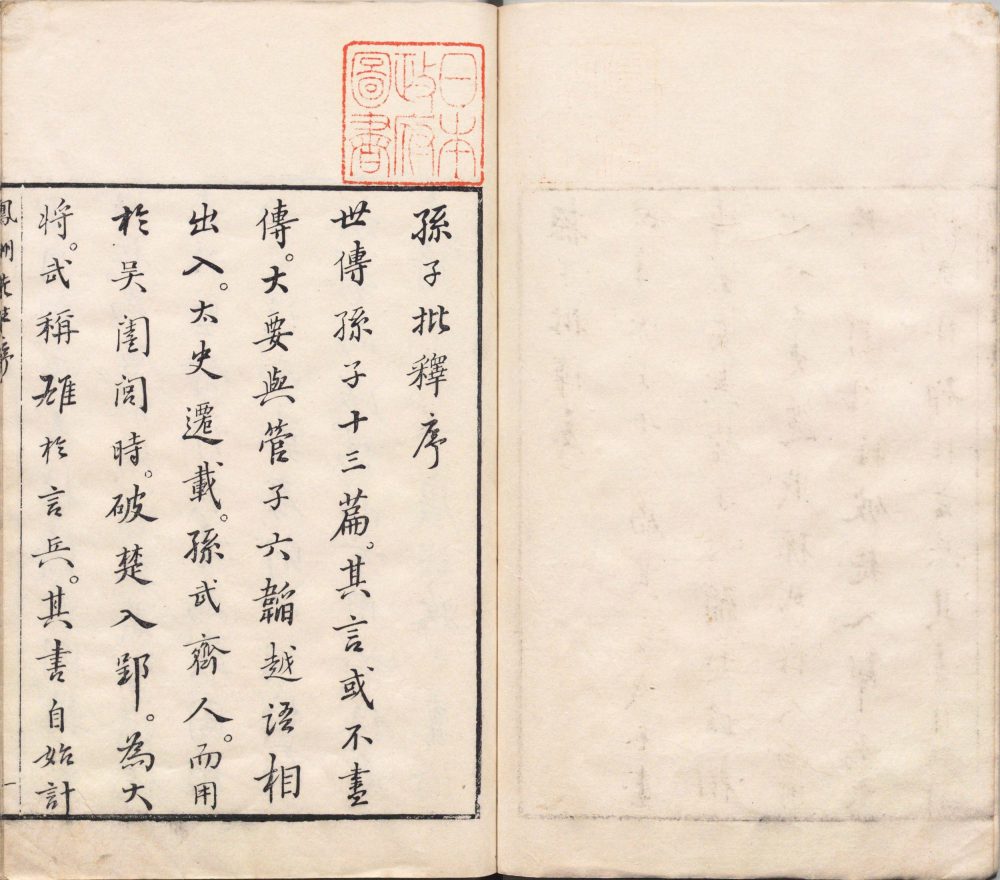 日本
政府
圖書
孫子批釋序
世傳孫子十三篇。其言或不盡
傳。大要與管子六韜越語相
出入。太史遷載。孫武齊人。而用
於吴闔閭時。破楚入郢。為大
將。武稱雄於言兵。其書自始計
鳳州
序
一